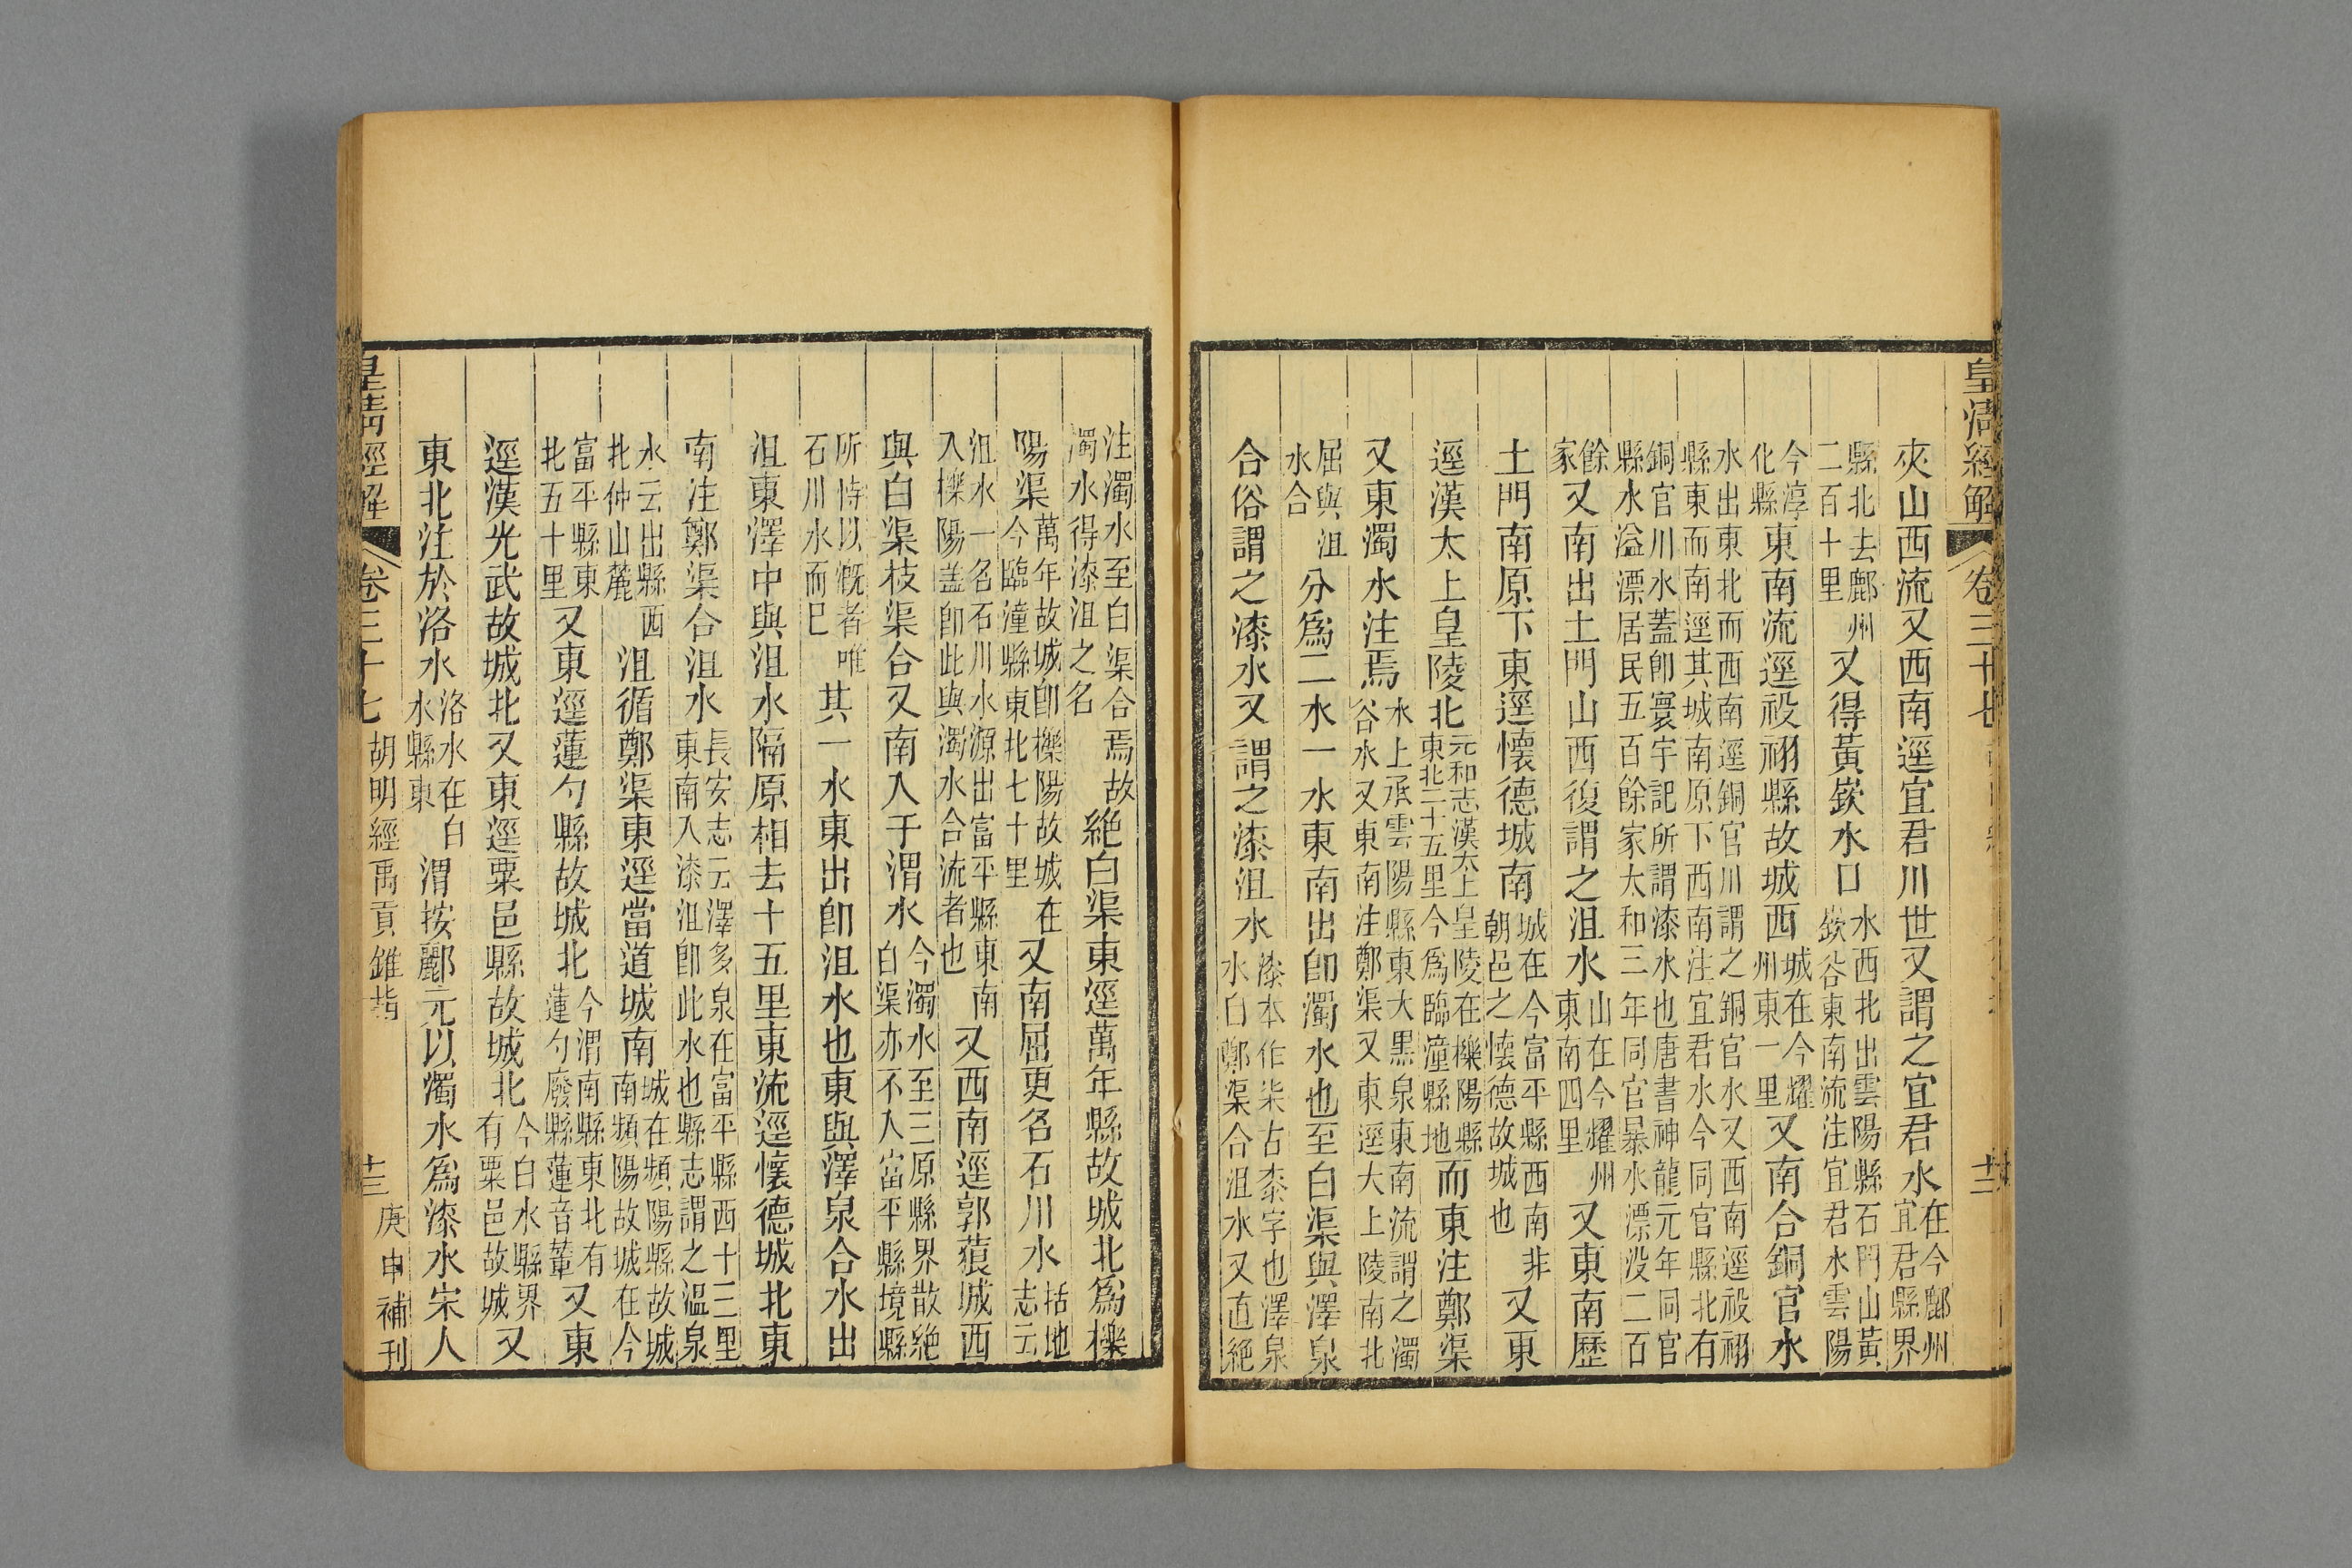 皇清經解 卷三十七 十二
夾山西流又西南逕宜君川世又謂之宜君水在今鄜州宜君縣界
縣北去鄜州二百十里又得黃嶔水口水西北出雲陽縣石門山黃嶔谷東南流注宜君水雲陽
今淳化縣東南流逕祋祤縣故城西城在今耀州東一里又南合銅官水
水出東北而西南逕銅官川謂之銅官水又西南逕祋祤縣東而南逕其城南原下西南注宜君水今同官縣北有
銅官川水蓋卽寰宇記所謂漆水也唐書神龍元年同官縣水溢漂居民五百餘家太和三年同官暴水漂没二百
餘家又南出土門山西復謂之沮水山在今耀州東南四里又東南歷
土門南原下東逕懷德城南城在今富平縣西南非朝邑之懷德故城也又東
逕漢太上皇陵北元和志漢太上皇陵在櫟陽縣東北二十五里今爲臨潼縣地而東注鄭渠
又東濁水注焉水上承雲陽縣東大黑泉東南流謂之濁谷水又東南注鄭渠又東逕太上陵南北
屈與沮水合分爲二水一水東南出卽濁水也至白渠與澤泉
合俗謂之漆水又謂之漆沮水漆本作柒古桼字也澤泉水白鄭渠合沮水又直絶
注濁水至白渠合焉故濁水得漆沮之名絶白渠東逕萬年縣故城北爲櫟
陽渠萬年故城卽櫟陽故城在今臨潼縣東北七十里又南屈更名石川水括地志云
沮水一名石川水源出富平縣東南入櫟陽蓋卽此與濁水合流者也又西南逕郭蒗城西
與白渠枝渠合又南入于渭水今濁水至三原縣界散絶白渠亦不入富平縣境縣
所恃以漑者唯石川水而已其一水東出卽沮水也東與澤泉合水出
沮東澤中與沮水隔原相去十五里東流逕懷德城北東
南注鄭渠合沮水長安志云澤多泉在富平縣西十三里東南入漆沮卽此水也縣志謂之溫泉
水云出縣西北仲山麓沮循鄭渠東逕當道城南城在頻陽縣故城南頻陽故城在今
富平縣東北五十里又東逕蓮勺縣故城北今渭南縣東北有蓮勺廢縣蓮音輦又東
逕漢光武故城北又東逕粟邑縣故城北今白水縣界有粟邑故城又
東北注於洛水洛水在白水縣東渭按酈元以濁水爲漆水宋人
皇清經解 卷三十七 胡明經禹貢錐指 十三 庚申補刊